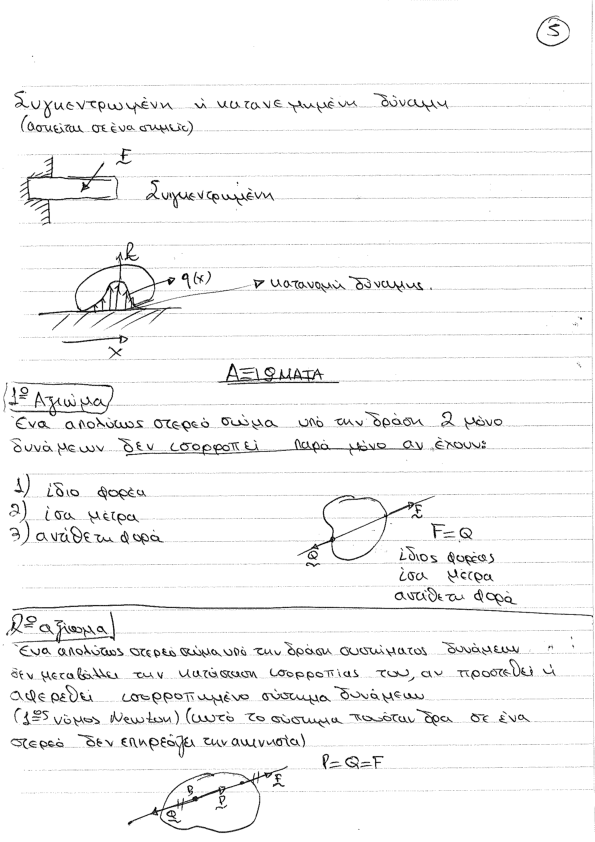 5
Συγκεντρωμένη ή κατανεμημένη δύναμη
(ασκείται σε ένα σημείο)
F
Συγκεντρωμένη
R
q(x)
κατανομή δύναμης.
x
ΑΞΙΩΜΑΤΑ
1º Αξίωμα
Ένα απολύτως στερεό σώμα υπό την δράση 2 μόνο
δυνάμεων δεν ισορροπεί παρά μόνο αν έχουν:
1) ίδιο φορέα
2) ίσα μέτρα
3) αντίθετη φορά
F
Q
F=Q
ίδιος φορέας
ίσα μέτρα
αντίθετη φορά
2º αξίωμα
Ένα απολύτως στερεό σώμα υπό την δράση συστήματος δυνάμεων
δεν μεταβάλλει την κατάσταση ισορροπίας του, αν προστεθεί ή
αφερεθεί ισορροπημένο σύστημα δυνάμεων
(1ος νόμος Newton) (αυτό το σύστημα που όταν δρα σε ένα
στερεό δεν επηρεάζει την ακινησία)
P=Q=F
B
F
P
Q